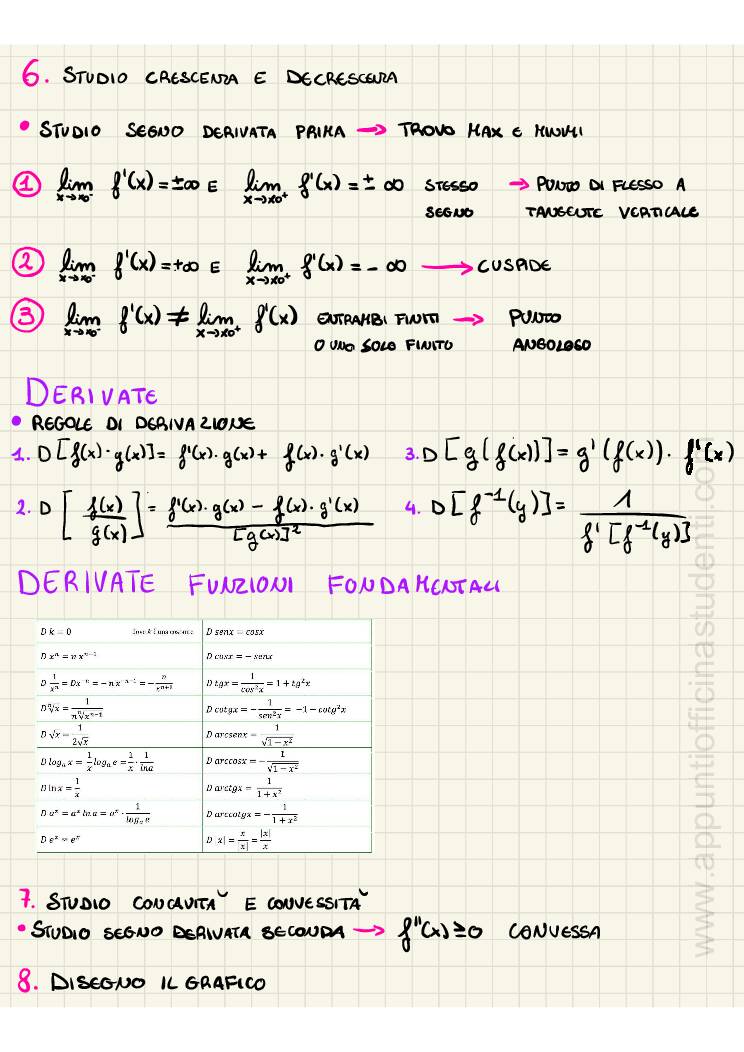 6. STUDIO CRESCENZA E DECRESCENZA
• STUDIO SEGNO DERIVATA PRIMA → TROVO MAX E MINIMI
① lim x→x0⁻ f'(x) = ±∞ E lim x→x0⁺ f'(x) = ± ∞ STESSO SEGNO → PUNTO DI FLESSO A TANGENTE VERTICALE
② lim x→x0⁻ f'(x) = +∞ E lim x→x0⁺ f'(x) = - ∞ → CUSPIDE
③ lim x→x0⁻ f'(x) ≠ lim x→x0⁺ f'(x) ENTRAMBI FINITI O UNO SOLO FINITO → PUNTO ANGOLOSO
DERIVATE
• REGOLE DI DERIVAZIONE
1. D[f(x)·g(x)] = f'(x)·g(x) + f(x)·g'(x)
3. D[g(f(x))] = g'(f(x))·f'(x)
2. D[f(x)/g(x)] = f'(x)·g(x) - f(x)·g'(x) / [g(x)]²
4. D[f⁻¹(y)] = 1 / f'[f⁻¹(y)]
DERIVATE FUNZIONI FONDAMENTALI
D k = 0 dove k è una costante D senx = cosx
D xⁿ = n xⁿ⁻¹ D cosx = − senx
D 1/xⁿ = Dx⁻ⁿ = −n x⁻ⁿ⁻¹ = −n/xⁿ⁺¹ D tgx = 1/cos²x = 1 + tg²x
D ⁿ√x = 1/(n ⁿ√xⁿ⁻¹) D cotgx = −1/sen²x = −1 − cotg²x
D √x = 1/(2√x) D arcsenx = 1/√(1−x²)
D logₐ x = 1/x logₐ e = 1/x · 1/lna D arccosx = −1/√(1−x²)
D ln x = 1/x D arctgx = 1/(1+x²)
D aˣ = aˣ ln a = aˣ · 1/logₐ e D arccotgx = −1/(1+x²)
D eˣ = eˣ D |x| = x/|x| = |x|/x
7. STUDIO CONCAVITÀ E CONVESSITÀ
• STUDIO SEGNO DERIVATA SECONDA → f''(x) ≥ 0 CONVESSA
8. DISEGNO IL GRAFICO
www.appuntiofficinastudenti.com